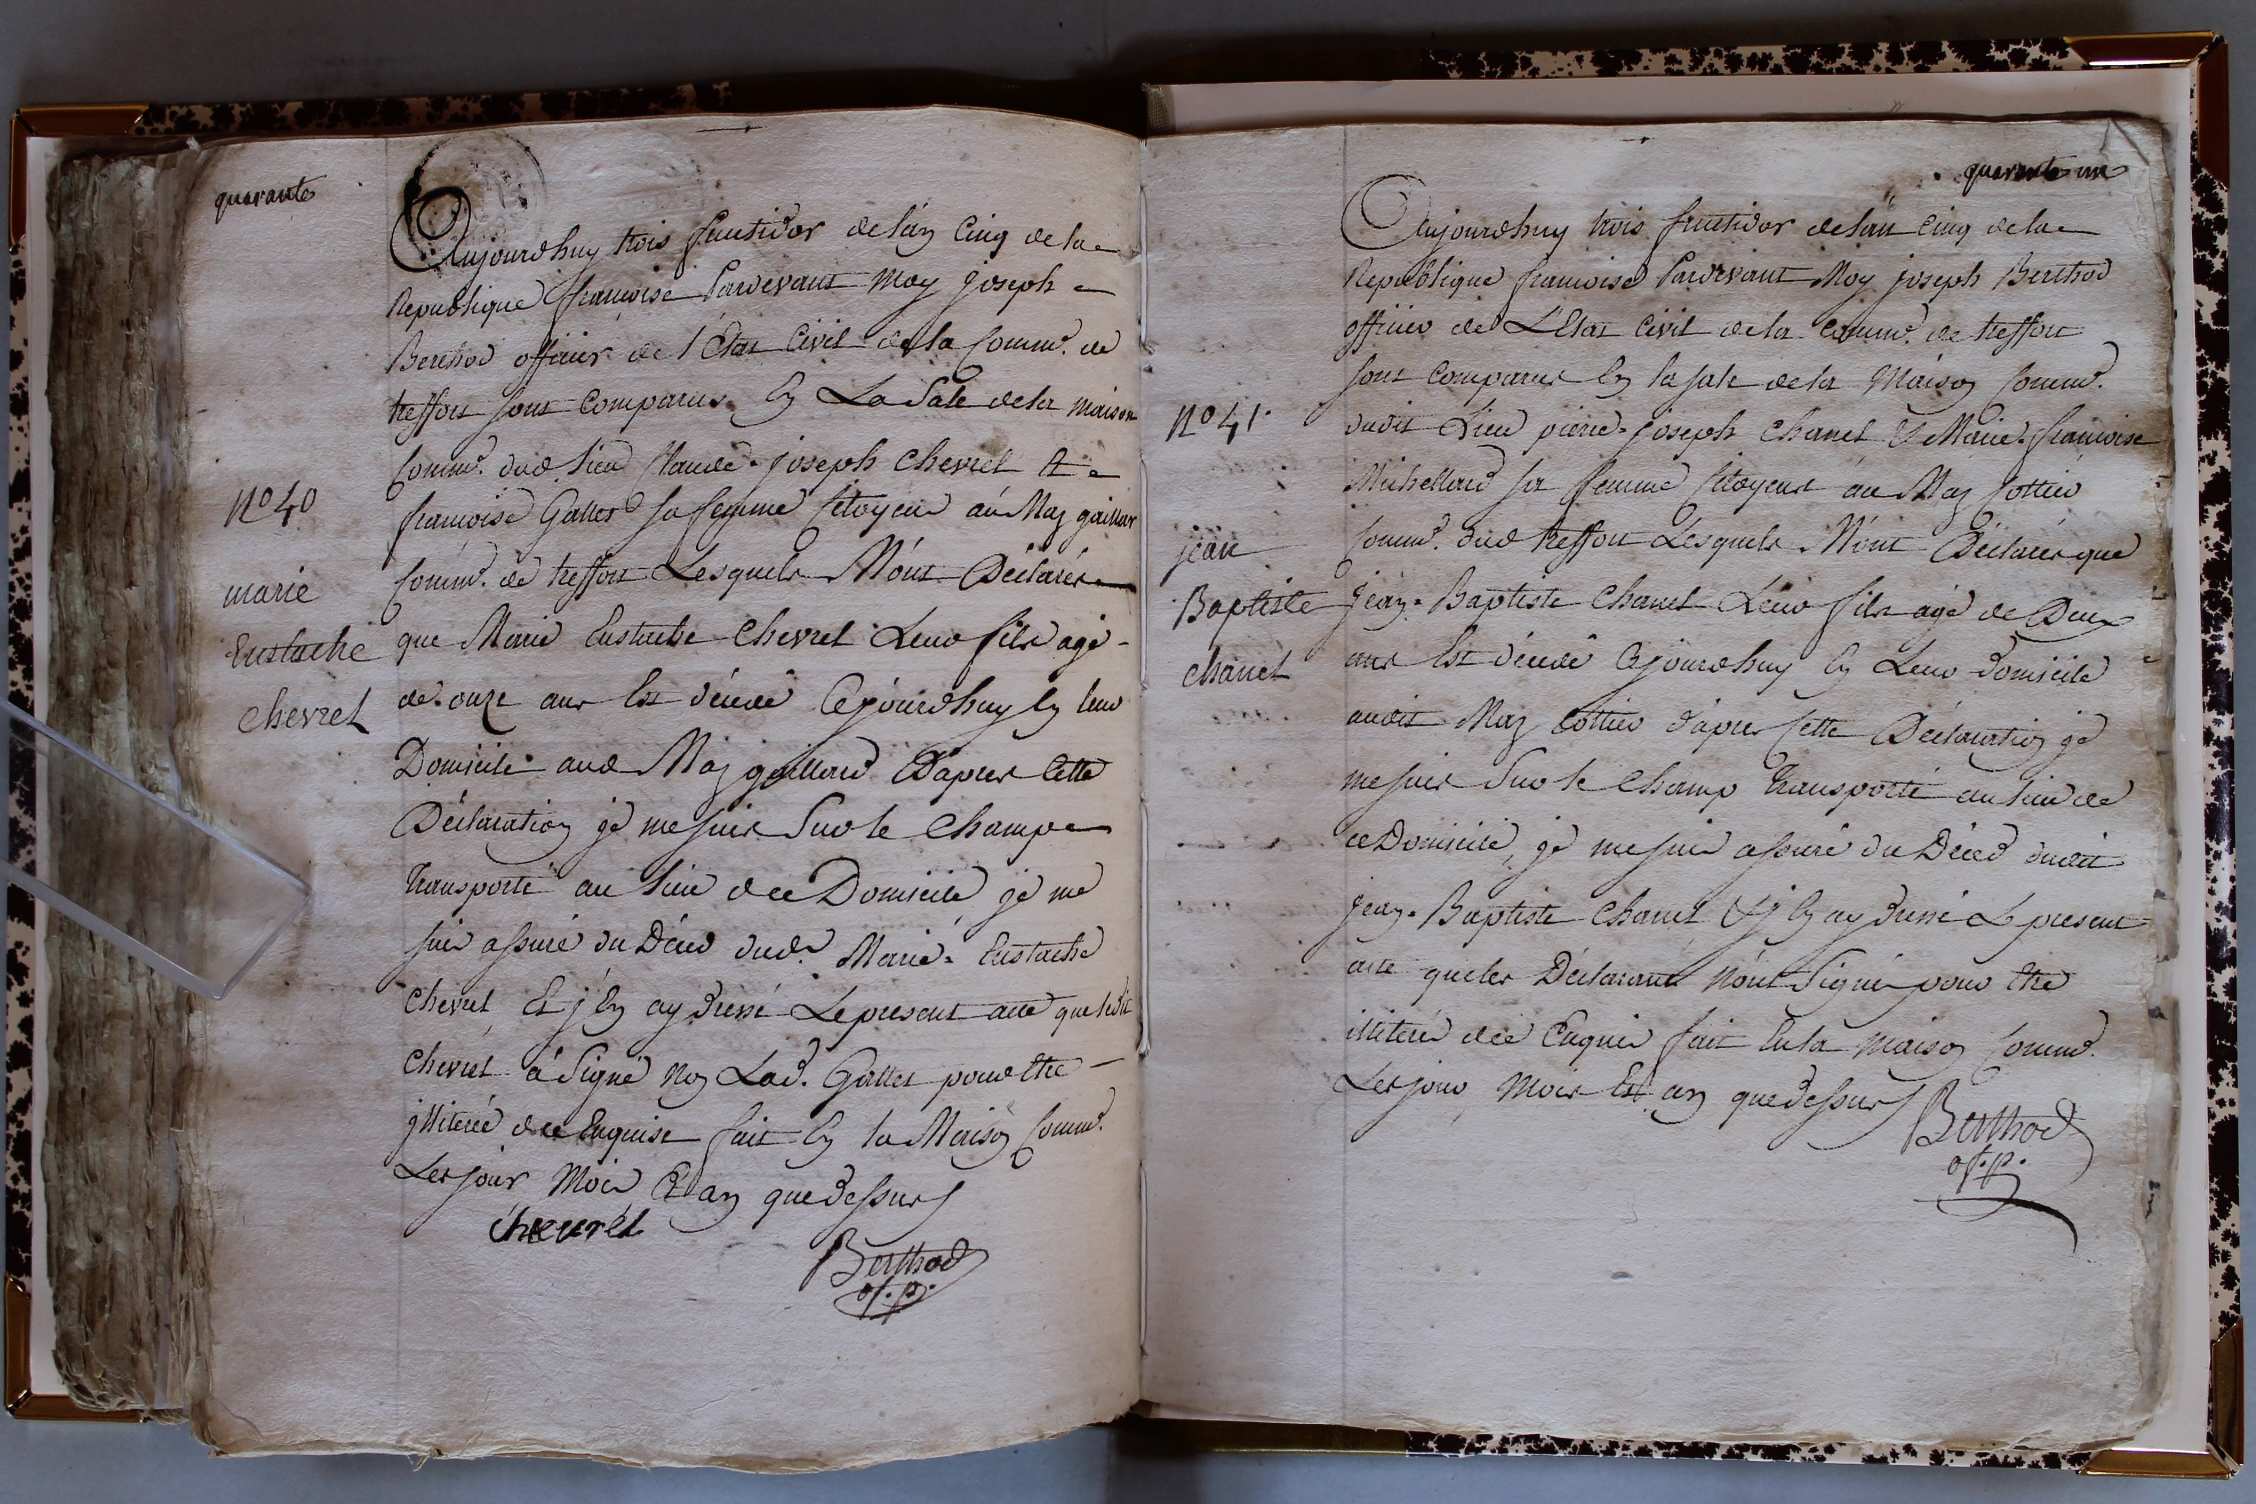 quarante
Aujourdhuy trois fructidor de lán Cinq de la
Republique françoise Pardevant Moy Joseph
Berthod officier de l'État Civil de la Commᵉ. de
treffort sont Comparus En La Sale de la maison
Commᵉ. dud. lieu Claude-joseph Chevret Et
françoise Gallet sa femme Citoyens áu Maz gaillard
Commᵉ. de treffort Lesquels M'ónt Déclarés
que Marie Eustache Chevret Leur fils agé
de onze ans Est décedé Cejóurdhuy En leur
Domicile aud. Maz gaillard D'apres Cette
Déclaration jé me suis Sur le Champ
transporté au lieu de ce Domicile jé me
suis assuré du Décès dudᵗ. Marie-Eustache
Chevret Et j'En ay dressé Le present acte que ledit
Chevret á Signé Non Lad. Gallet pour être
jlliterée de ce Enquise fait En la Maison Commᵉ.
Les jour Mois Et an que Dessus
Chevrét
Berthod
of. p.
Nº 40
marie
Eustache
Chevret
quarante un
Aujourdhuy trois fructidor de lán cinq de la
Republique françoise Pardevant Moy joseph Berthod
officier de L'Etat Civil de la Commᵉ. de treffort
sont Comparus En la sale de la Maison Commᵉ.
dudit Lieu pierre-joseph Chanel & Marie-françoise
Michellard sa femme Citoyens áu Maz Cottier
Commᵉ. dud treffort Lésquels M'ónt Déclarés que
Jean-Baptiste Chanel Leur fils agé de Deux
ans Est décedé Cejóurdhuy En Leur domicile
audit Maz Cottier d'ápres Cette Déclaration jé
me suis Sur le Champ transporté au lieu de
ce Domicile, jé me suis assuré du Décés dudit
Jean-Baptiste Chanel & j'En ay dressé Le present
acte que les Déclarants N'ónt Signés pour être
illiterés de ce Enquis fait En la Maison Commᵉ.
Les jour Mois Et an que Dessus
Berthod
of. p.
Nº 41.
jean
Baptiste
Chanel